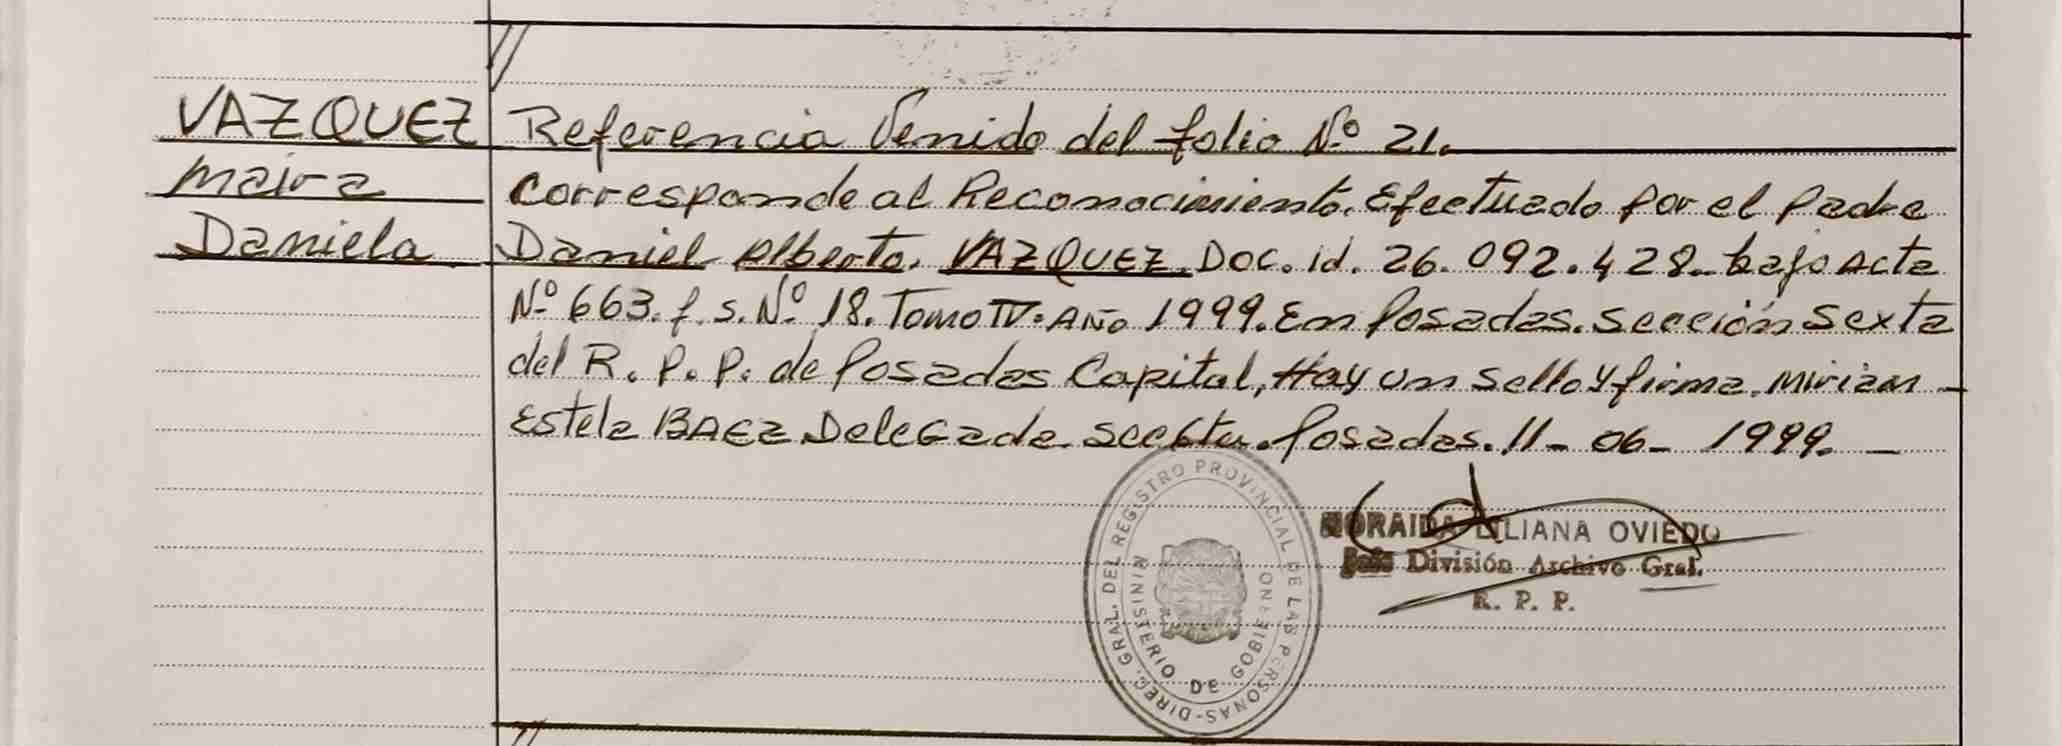 VAZQUEZ
Maira
Daniela
Referencia Venido del folio Nº 21.
Corresponde al Reconocimiento. Efectuado por el padre
Daniel Alberto. VAZQUEZ. Doc. id. 26.092.428. bajo Acta
Nº 663. f. s. Nº 18. Tomo IV. Año 1999. En Posadas. Sección Sexta
del R. P. P. de Posadas Capital, Hay un Sello y firma. Miriam
Estela BAEZ Delegada Posadas. 11-06-1999.
DIREC. GRAL. DEL REGISTRO PROVINCIAL DE LAS PERSONAS-
MINISTERIO DE GOBIERNO
LILIANA OVIEDO
Jefe División Archivo Gral.
R. P. P.